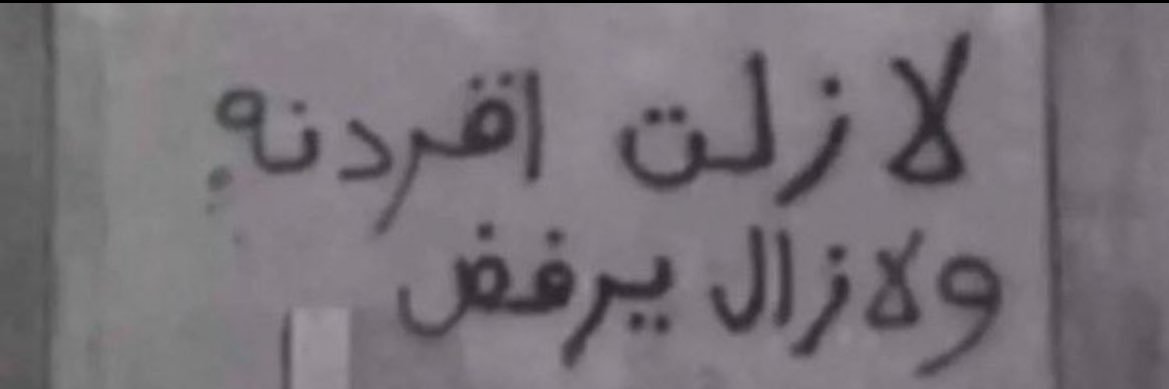 لا زلت اقردنه
ولا زال يرفض